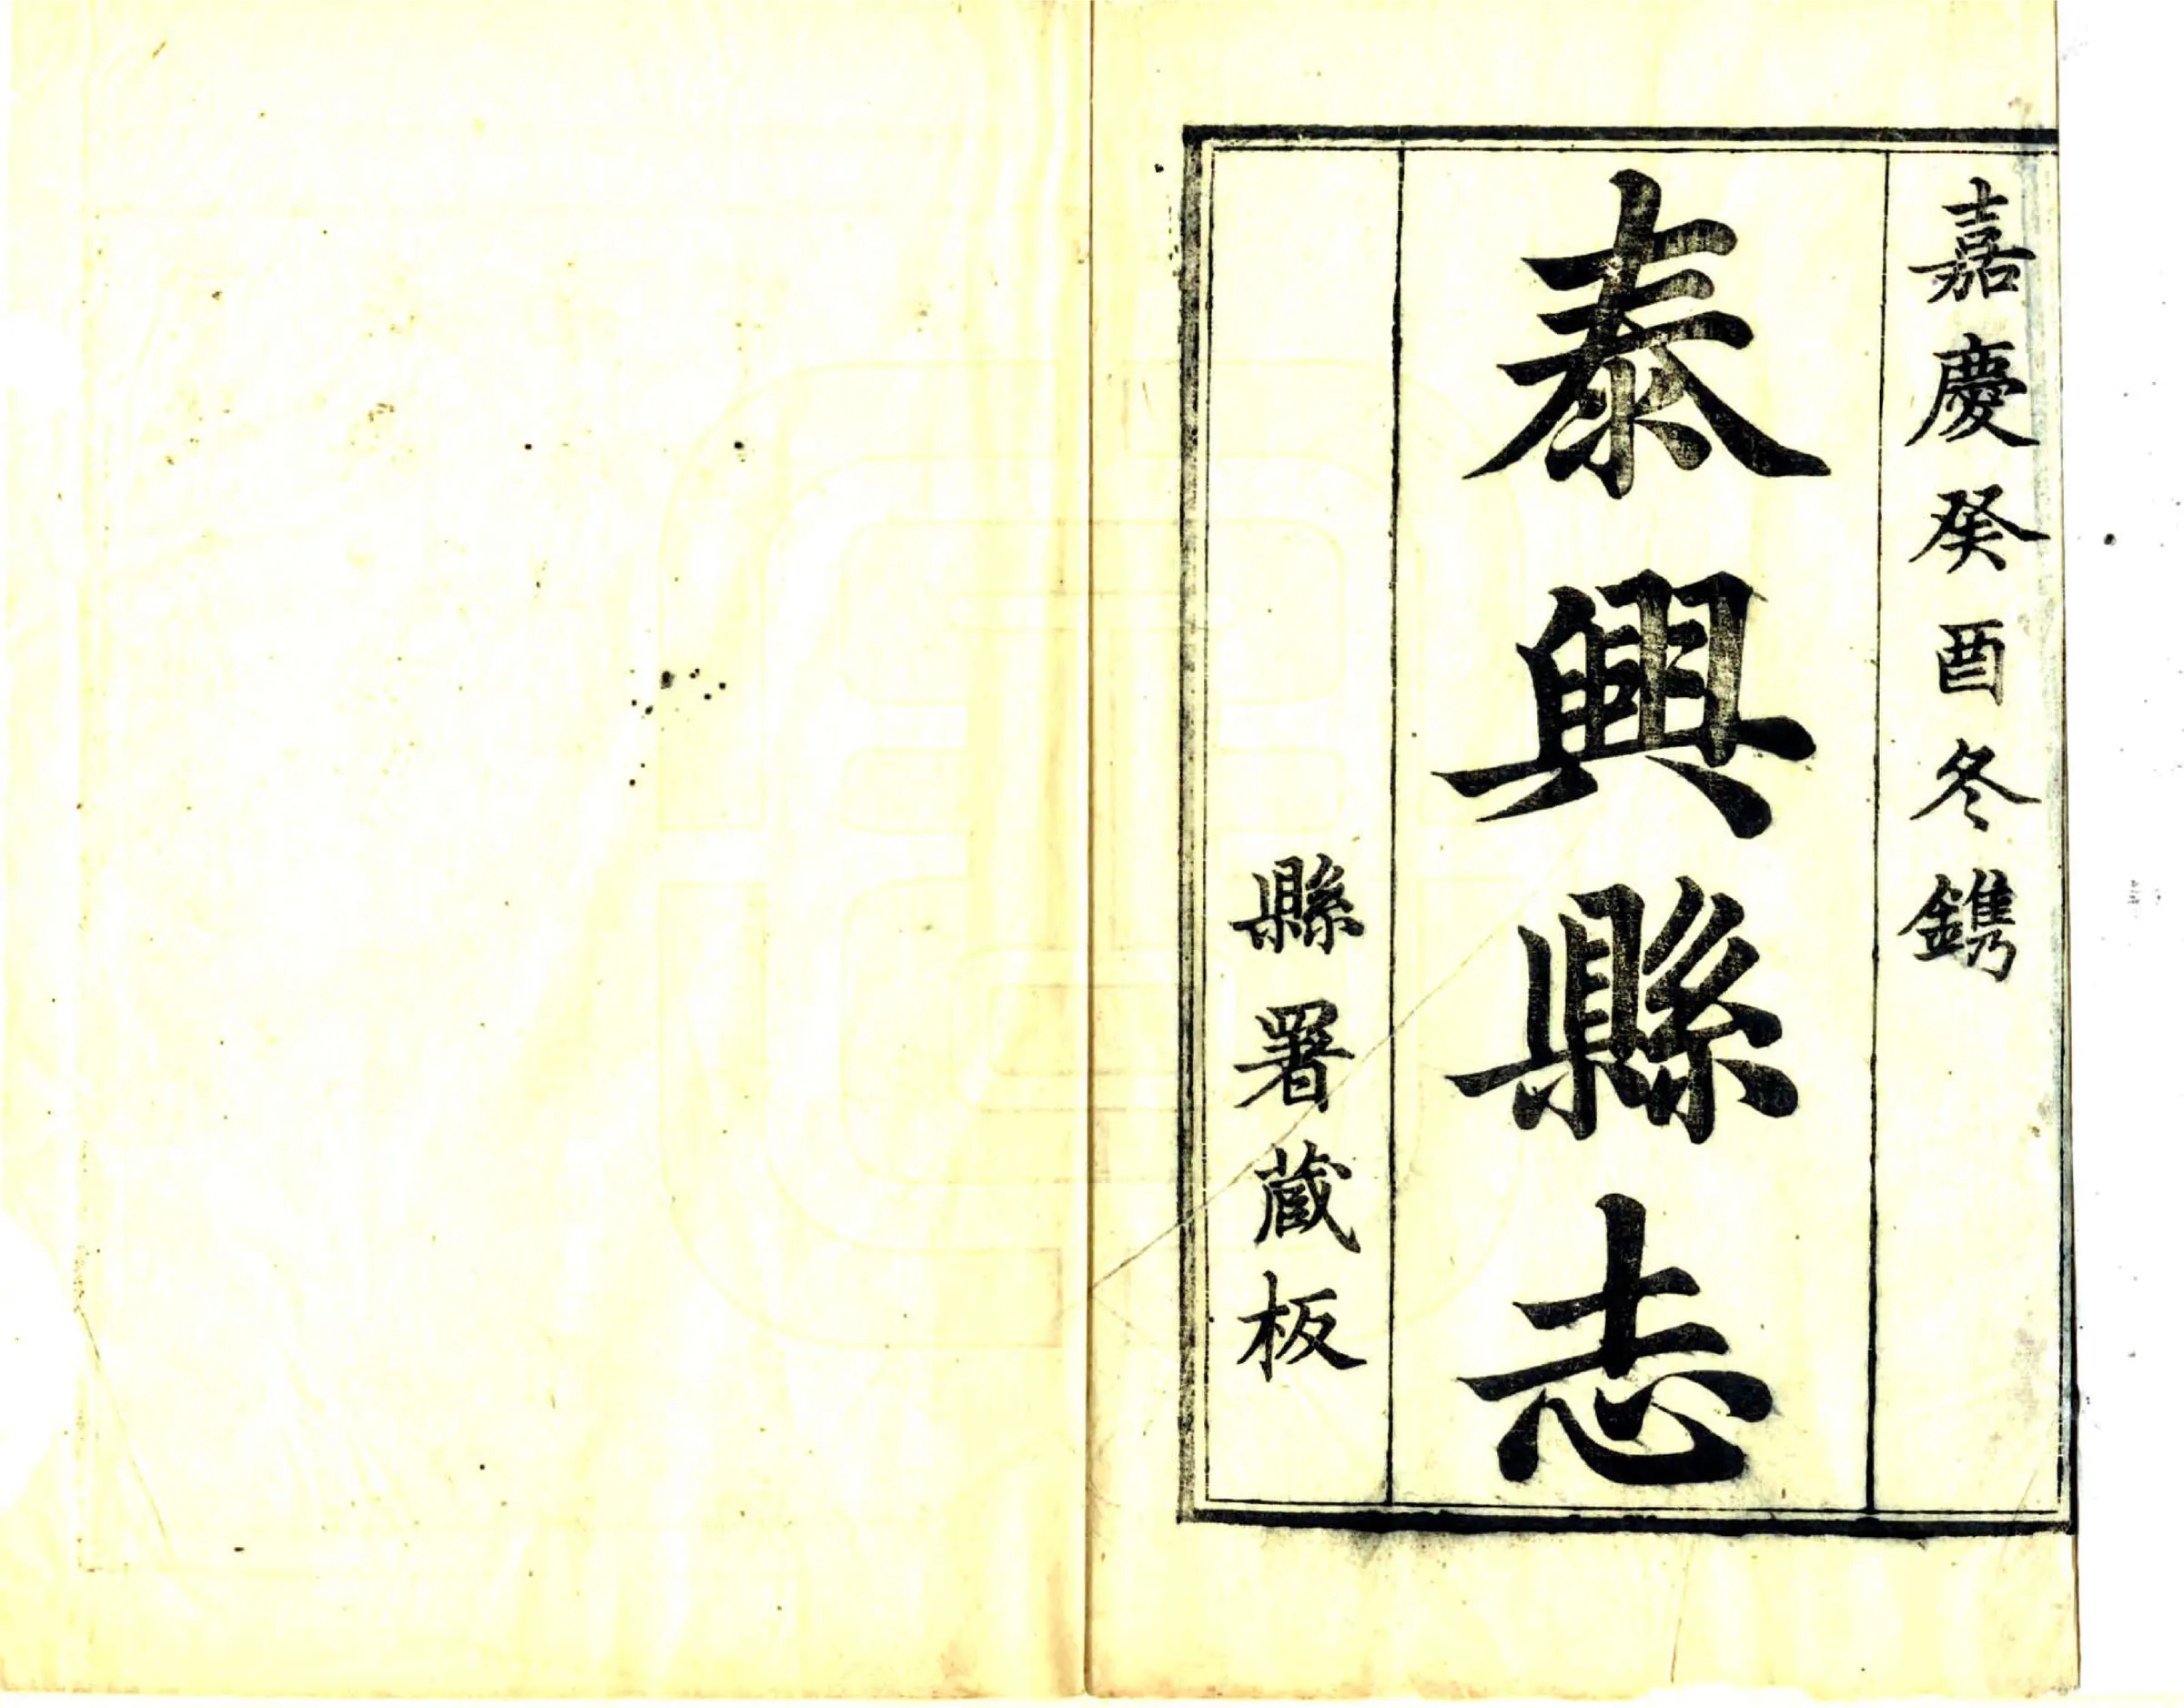 嘉慶癸酉冬鐫
泰興縣志
縣署藏板